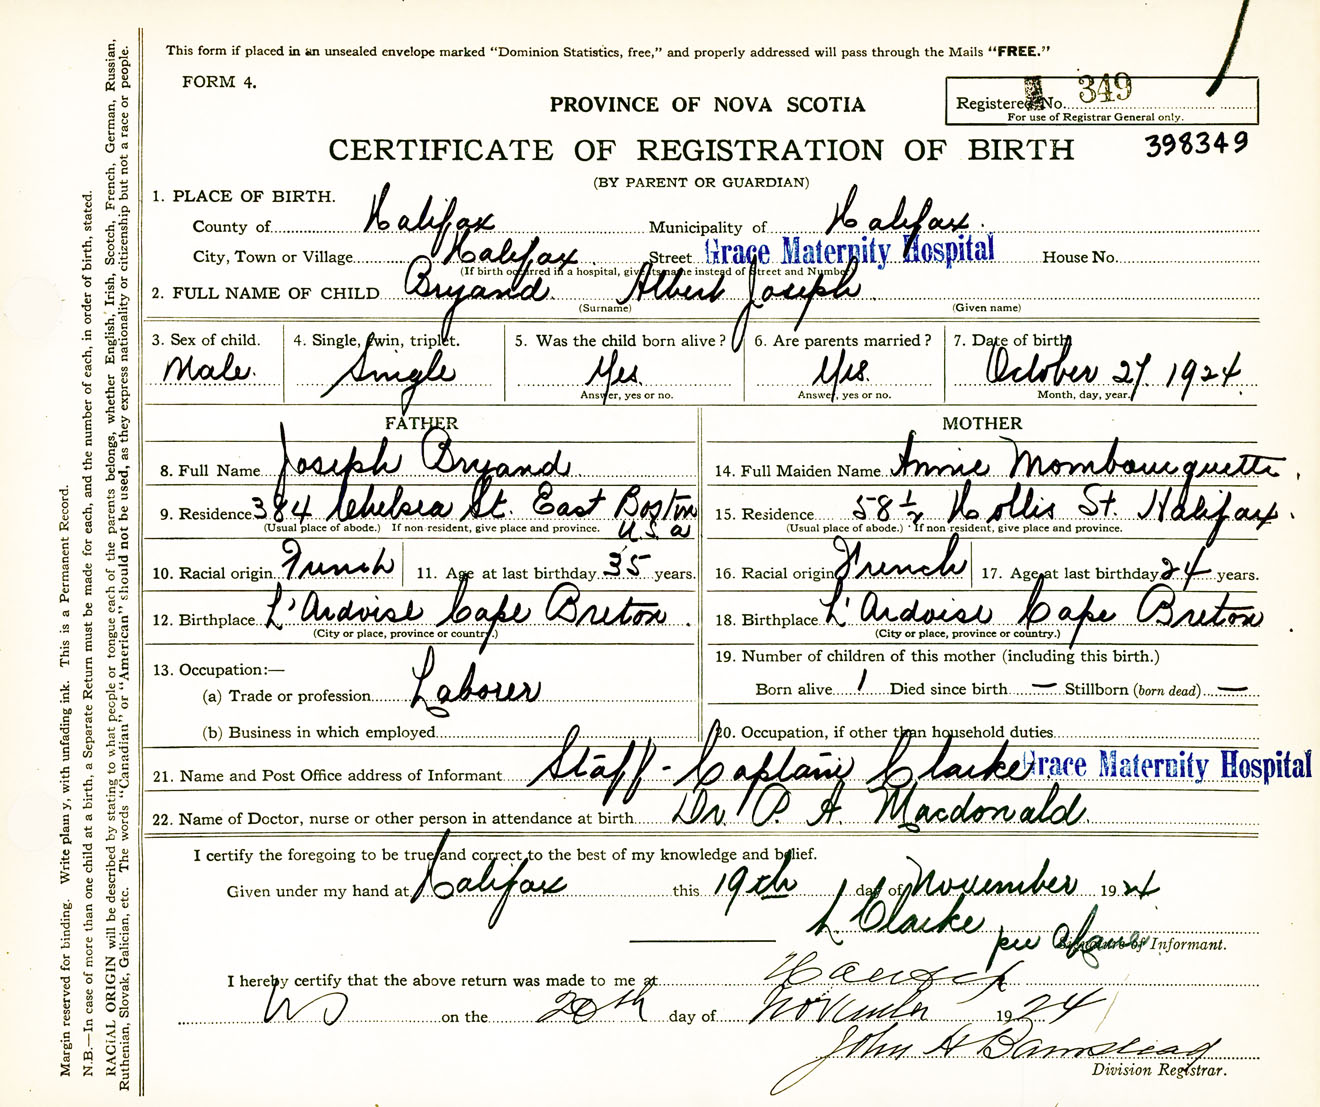 This form if placed in an unsealed envelope marked "Dominion Statistics, free," and properly addressed will pass through the Mails "FREE."
FORM 4.
Registered No. 349
For use of Registrar General only.
PROVINCE OF NOVA SCOTIA
CERTIFICATE OF REGISTRATION OF BIRTH
398349
(BY PARENT OR GUARDIAN)
1. PLACE OF BIRTH.
County of Halifax Municipality of Halifax.
City, Town or Village Halifax. Street Grace Maternity Hospital House No.
(If birth occurred in a hospital, give its name instead of Street and Number)
2. FULL NAME OF CHILD Bryand. Albert Joseph.
(Surname) (Given name)
3. Sex of child. 4. Single, twin, triplet. 5. Was the child born alive? 6. Are parents married? 7. Date of birth
Male. Single Yes. Yes. October 27. 1924.
Answer, yes or no. Answer, yes or no. Month, day, year.
FATHER
8. Full Name Joseph Bryand
9. Residence 384 Chelsea St. East Boston
(Usual place of abode.) If non resident, give place and province. U.S.a
10. Racial origin French 11. Age at last birthday 35 years.
12. Birthplace L'Ardoise Cape Breton.
(City or place, province or country.)
13. Occupation:—
(a) Trade or profession Laborer
(b) Business in which employed
MOTHER
14. Full Maiden Name Annie Mombourquette.
15. Residence 58½ Hollis St. Halifax.
(Usual place of abode.) If non resident, give place and province.
16. Racial origin French 17. Age at last birthday 24 years.
18. Birthplace L'Ardoise Cape Breton.
(City or place, province or country.)
19. Number of children of this mother (including this birth.)
Born alive 1 Died since birth — Stillborn (born dead) —
20. Occupation, if other than household duties
21. Name and Post Office address of Informant Staff-Captain Clarke Grace Maternity Hospital
22. Name of Doctor, nurse or other person in attendance at birth Dr. P. A. Macdonald.
I certify the foregoing to be true and correct to the best of my knowledge and belief.
Given under my hand at Halifax this 19th day of November 1924
L Clarke
per
Signature of Informant.
I hereby certify that the above return was made to me at
on the 20th day of November 1924
John H Barnstead
Division Registrar.
Margin reserved for binding. Write plainly, with unfading ink. This is a Permanent Record.
N.B.—In case of more than one child at a birth, a Separate Return must be made for each, and the number of each, in order of birth, stated.
RACIAL ORIGIN will be described by stating to what people or tongue each of the parents belongs, whether English, Irish, Scotch, French, German, Russian,
Ruthenian, Slovak, Galician, etc. The words "Canadian" or "American" should not be used, as they express nationality or citizenship but not a race or people.